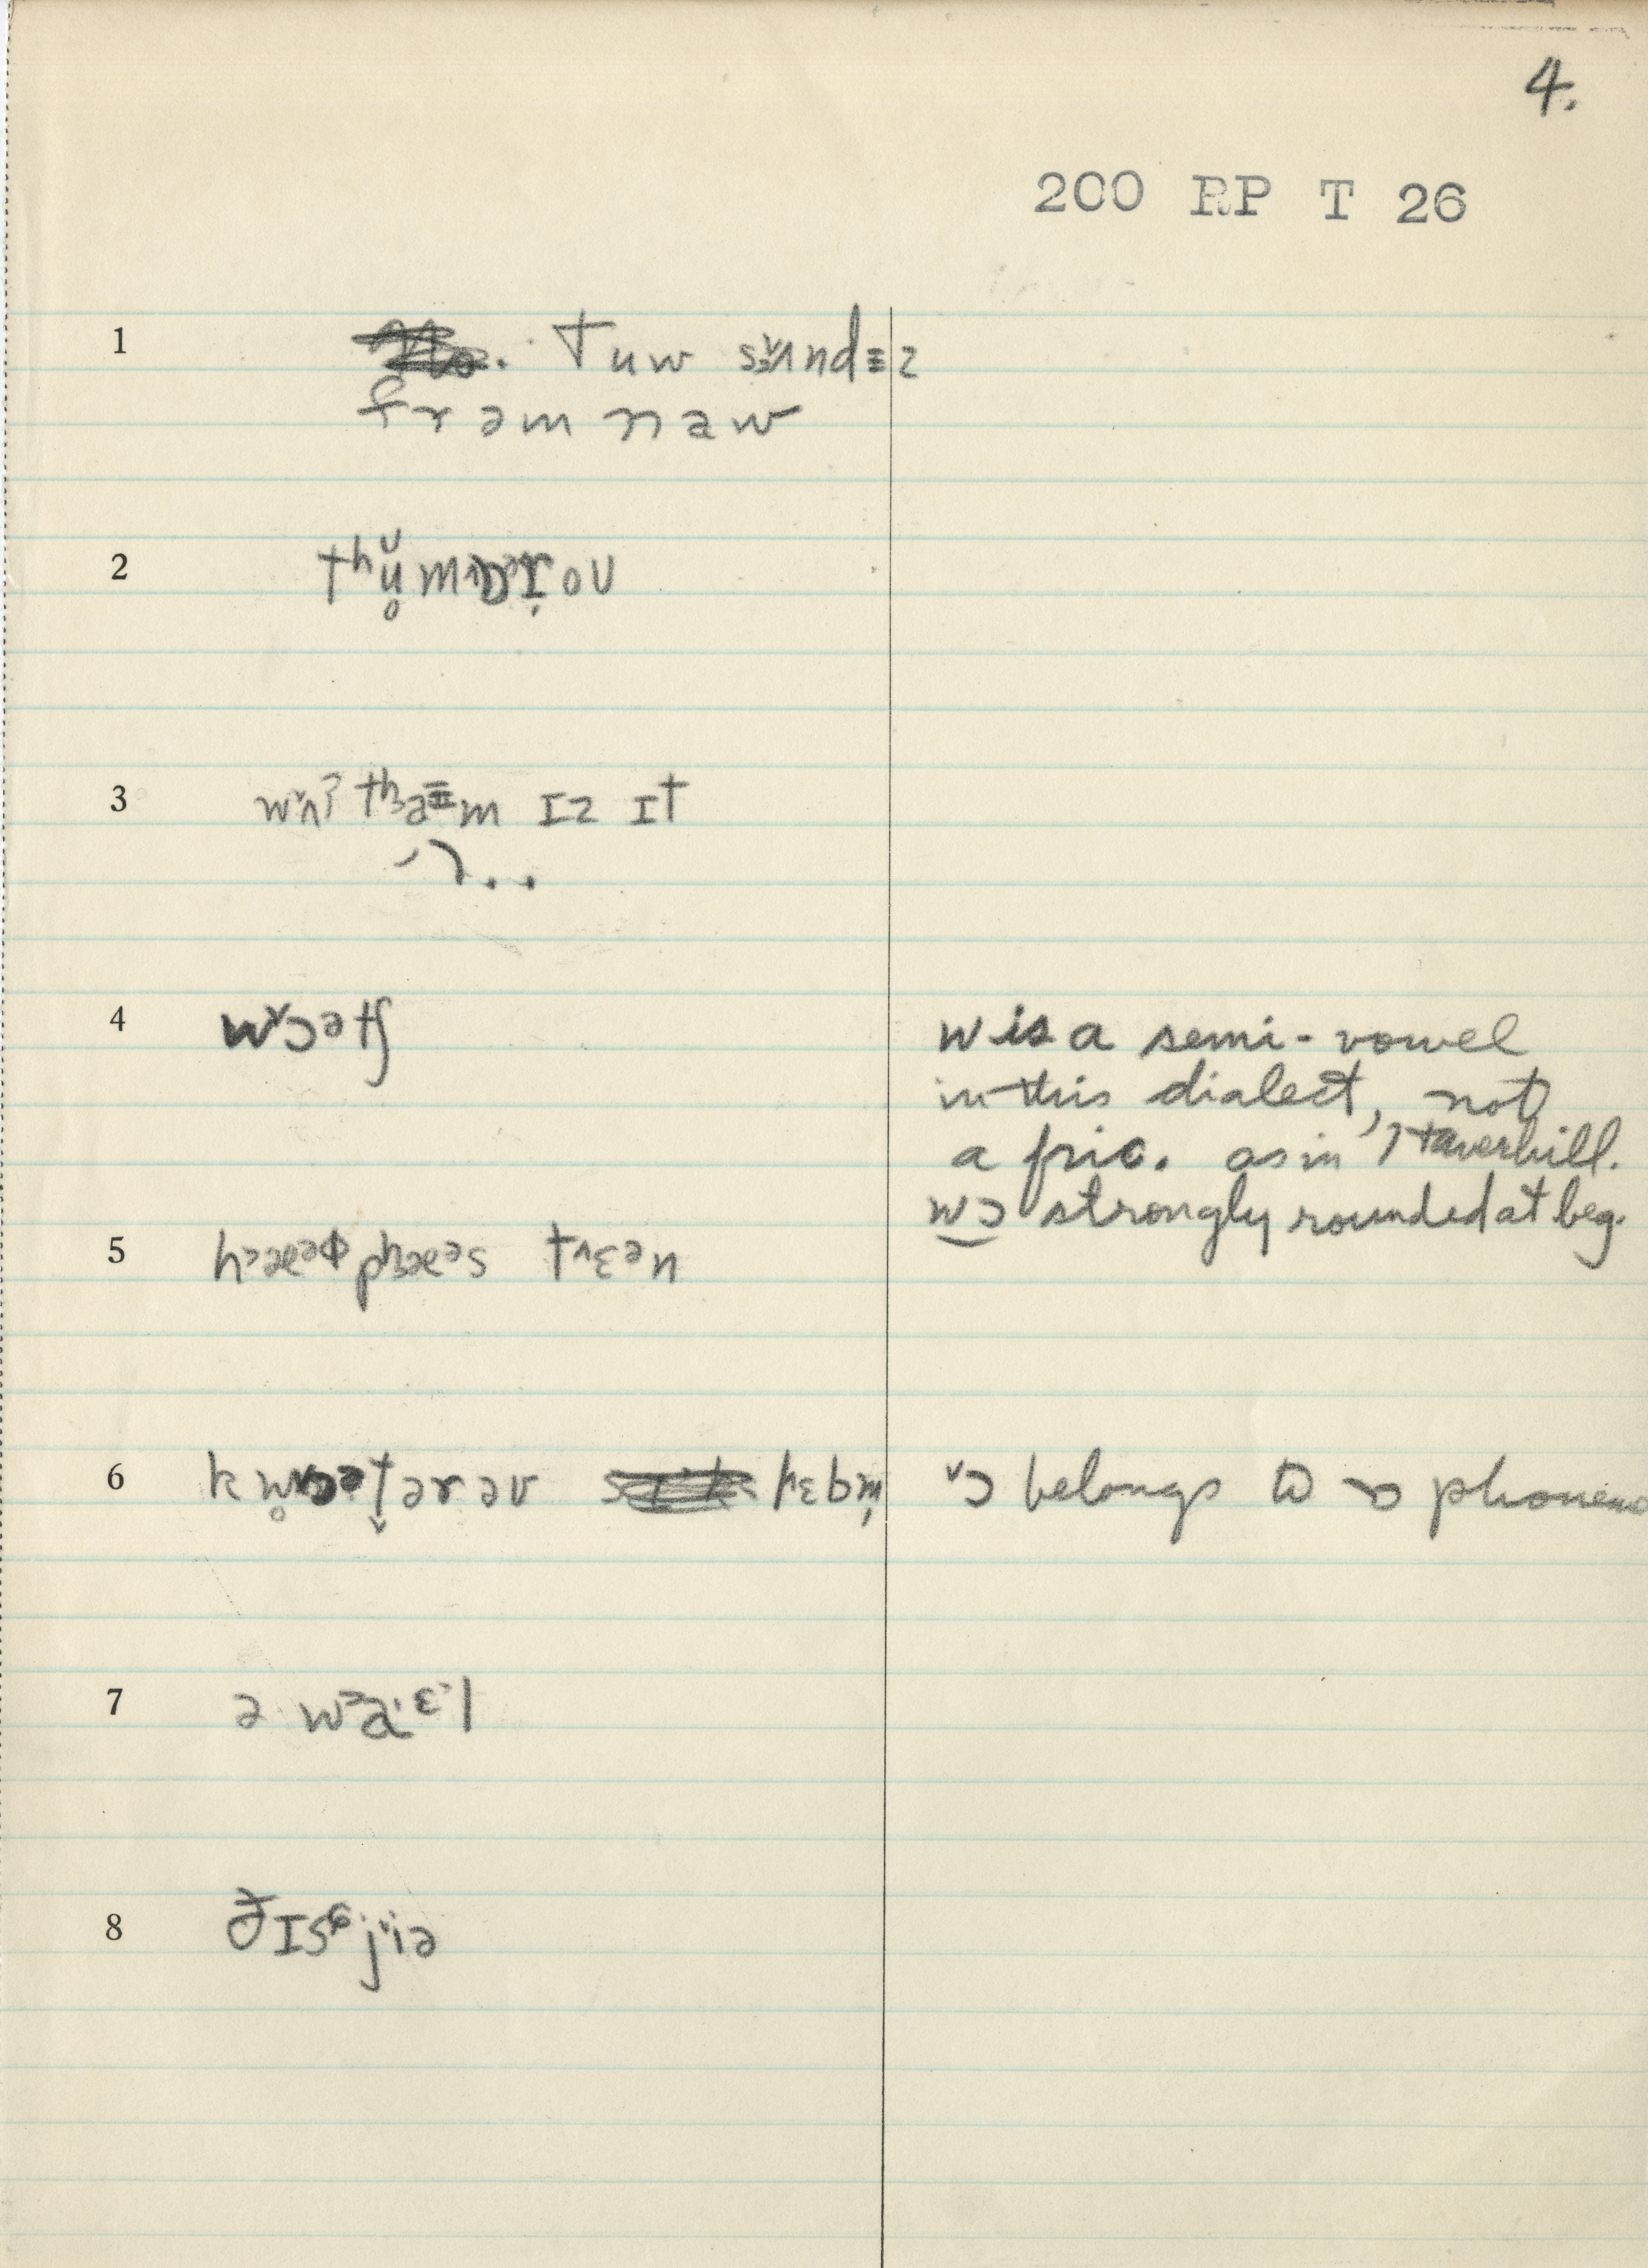 4.
200 RP T 26
1 tuw sʌndɪz
frəm naw
2 tʰʉmɒrou
3 wʌʔ tʰaɪm ɪz ɪt
4 wɔətʃ
w is a semi-vowel
in this dialect, not
a fric. as in Haverhill.
wɔ strongly rounded at beg.
5 hæəɸ pʰæəs tɛən
6 kwɔətərəv
ɔ belongs to ɒ phoneme
7 ə waɛl
8 ðɪs jiə